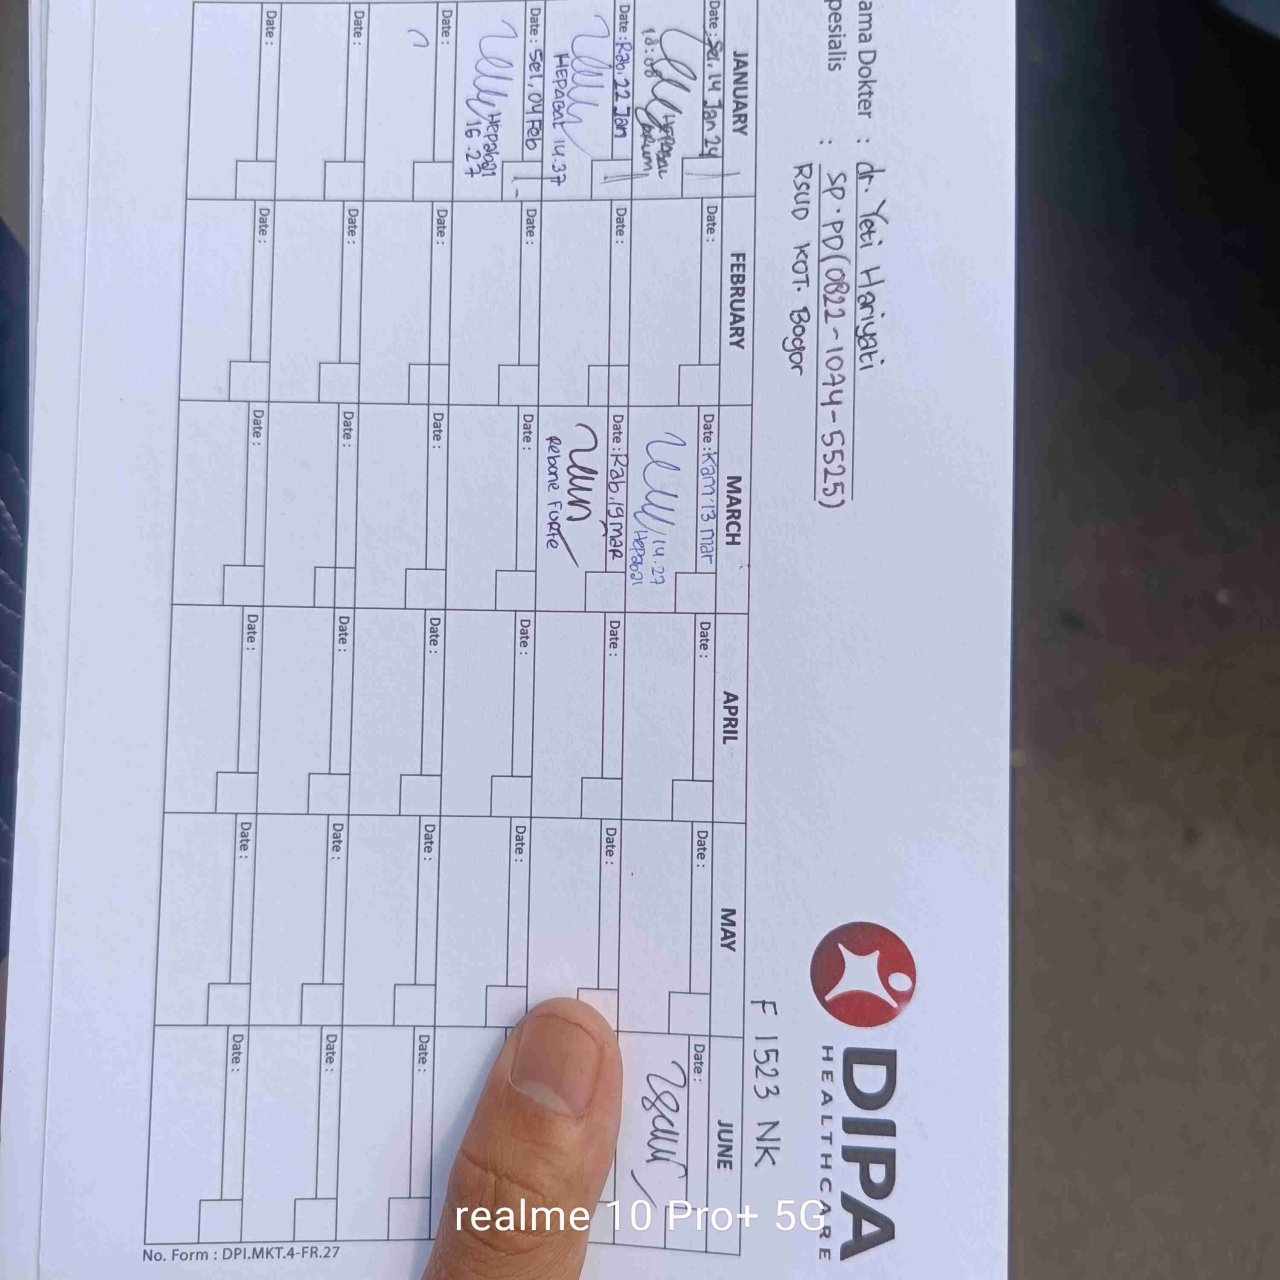 DIPA
HEALTHCARE
ama Dokter : dr. Yeti Hariyati
pesialis : SP.PD (0822-1074-5525)
RSUD KOT. Bogor
F 1523 NK
JANUARY FEBRUARY MARCH APRIL MAY JUNE
Date : Sel, 14 Jan 24 Date : Date : Kam, 13 mar Date : Date : Date :
18:08 14.27
Hepabal
Date : Rab, 22 Jan Date : Date : Rab, 19 mar Date : Date :
HEPABAL 14.37 Rebone Forte
Date : Sel, 04 Feb Date : Date : Date : Date :
Hepabal
16:27
Date : Date : Date : Date : Date : Date :
Date : Date : Date : Date : Date : Date :
Date : Date : Date : Date : Date : Date :
No. Form : DPI.MKT.4-FR.27
realme 10 Pro+ 5G